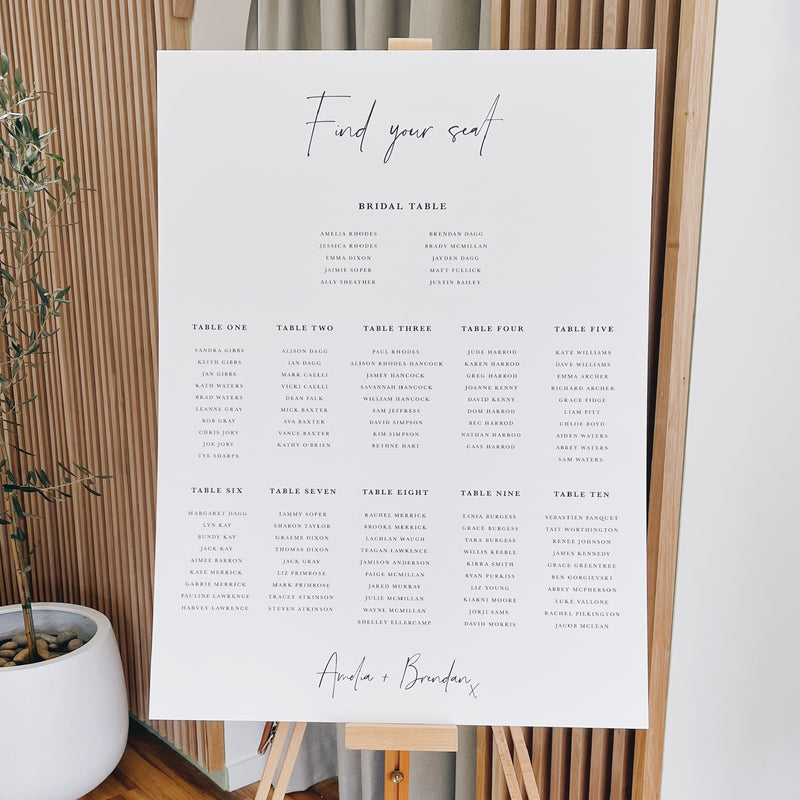 Find your seat
BRIDAL TABLE
AMELIA RHODES
JESSICA RHODES
EMMA DIXON
JAIMIE SOPER
ALLY SHEATHER
BRENDAN DAGG
BRADY MCMILLAN
JAYDEN DAGG
MATT FULLICK
JUSTIN BAILEY
TABLE ONE
SANDRA GIBBS
KEITH GIBBS
JAN GIBBS
KATH WATERS
BRAD WATERS
LEANNE GRAY
ROB GRAY
CHRIS JORY
JOE JORY
TYE SHARPE
TABLE TWO
ALISON DAGG
IAN DAGG
MARK CAELLI
VICKI CAELLI
DEAN FALK
MICK BAXTER
AVA BAXTER
VANCE BAXTER
KATHY O'BRIEN
TABLE THREE
PAUL RHODES
ALISON RHODES-HANCOCK
JAMEY HANCOCK
SAVANNAH HANCOCK
WILLIAM HANCOCK
SAM JEFFRESS
DAVID SIMPSON
KIM SIMPSON
BETHNE HART
TABLE FOUR
JUDE HARROD
KAREN HARROD
GREG HARROD
JOANNE KENNY
DAVID KENNY
DOM HARROD
BEC HARROD
NATHAN HARROD
CASS HARROD
TABLE FIVE
KATE WILLIAMS
DAVE WILLIAMS
EMMA ARCHER
RICHARD ARCHER
GRACE FIDGE
LIAM PITT
CHLOE BOYD
AIDEN WATERS
ABBEY WATERS
SAM WATERS
TABLE SIX
MARGARET DAGG
LYN KAY
BUNDY KAY
JACK KAY
AIMEE BARRON
KAYE MERRICK
GARRIE MERRICK
PAULINE LAWRENCE
HARVEY LAWRENCE
TABLE SEVEN
TAMMY SOPER
SHARON TAYLOR
GRAEME DIXON
THOMAS DIXON
JACK GRAY
LIZ PRIMROSE
MARK PRIMROSE
TRACEY ATKINSON
STEVEN ATKINSON
TABLE EIGHT
RACHEL MERRICK
BROOKE MERRICK
LACHLAN WAUGH
TEAGAN LAWRENCE
JAMISON ANDERSON
PAIGE MCMILLAN
JARED MURRAY
JULIE MCMILLAN
WAYNE MCMILLAN
SHELLEY ELLERCAMP
TABLE NINE
TANIA BURGESS
GRACE BURGESS
TARA BURGESS
WILLIS KEEBLE
KIRRA SMITH
RYAN PURKISS
LIZ YOUNG
KIARNI MOORE
JORJI SAMS
DAVID MORRIS
TABLE TEN
SEBASTIEN PANQUET
TAIT WORTHINGTON
RENEE JOHNSON
JAMES KENNEDY
GRACE GREENTREE
BEN GORGIEVSKI
ABBEY MCPHERSON
LUKE VALLONE
RACHEL PILKINGTON
JACOB MCLEAN
Amelia + Brendan x